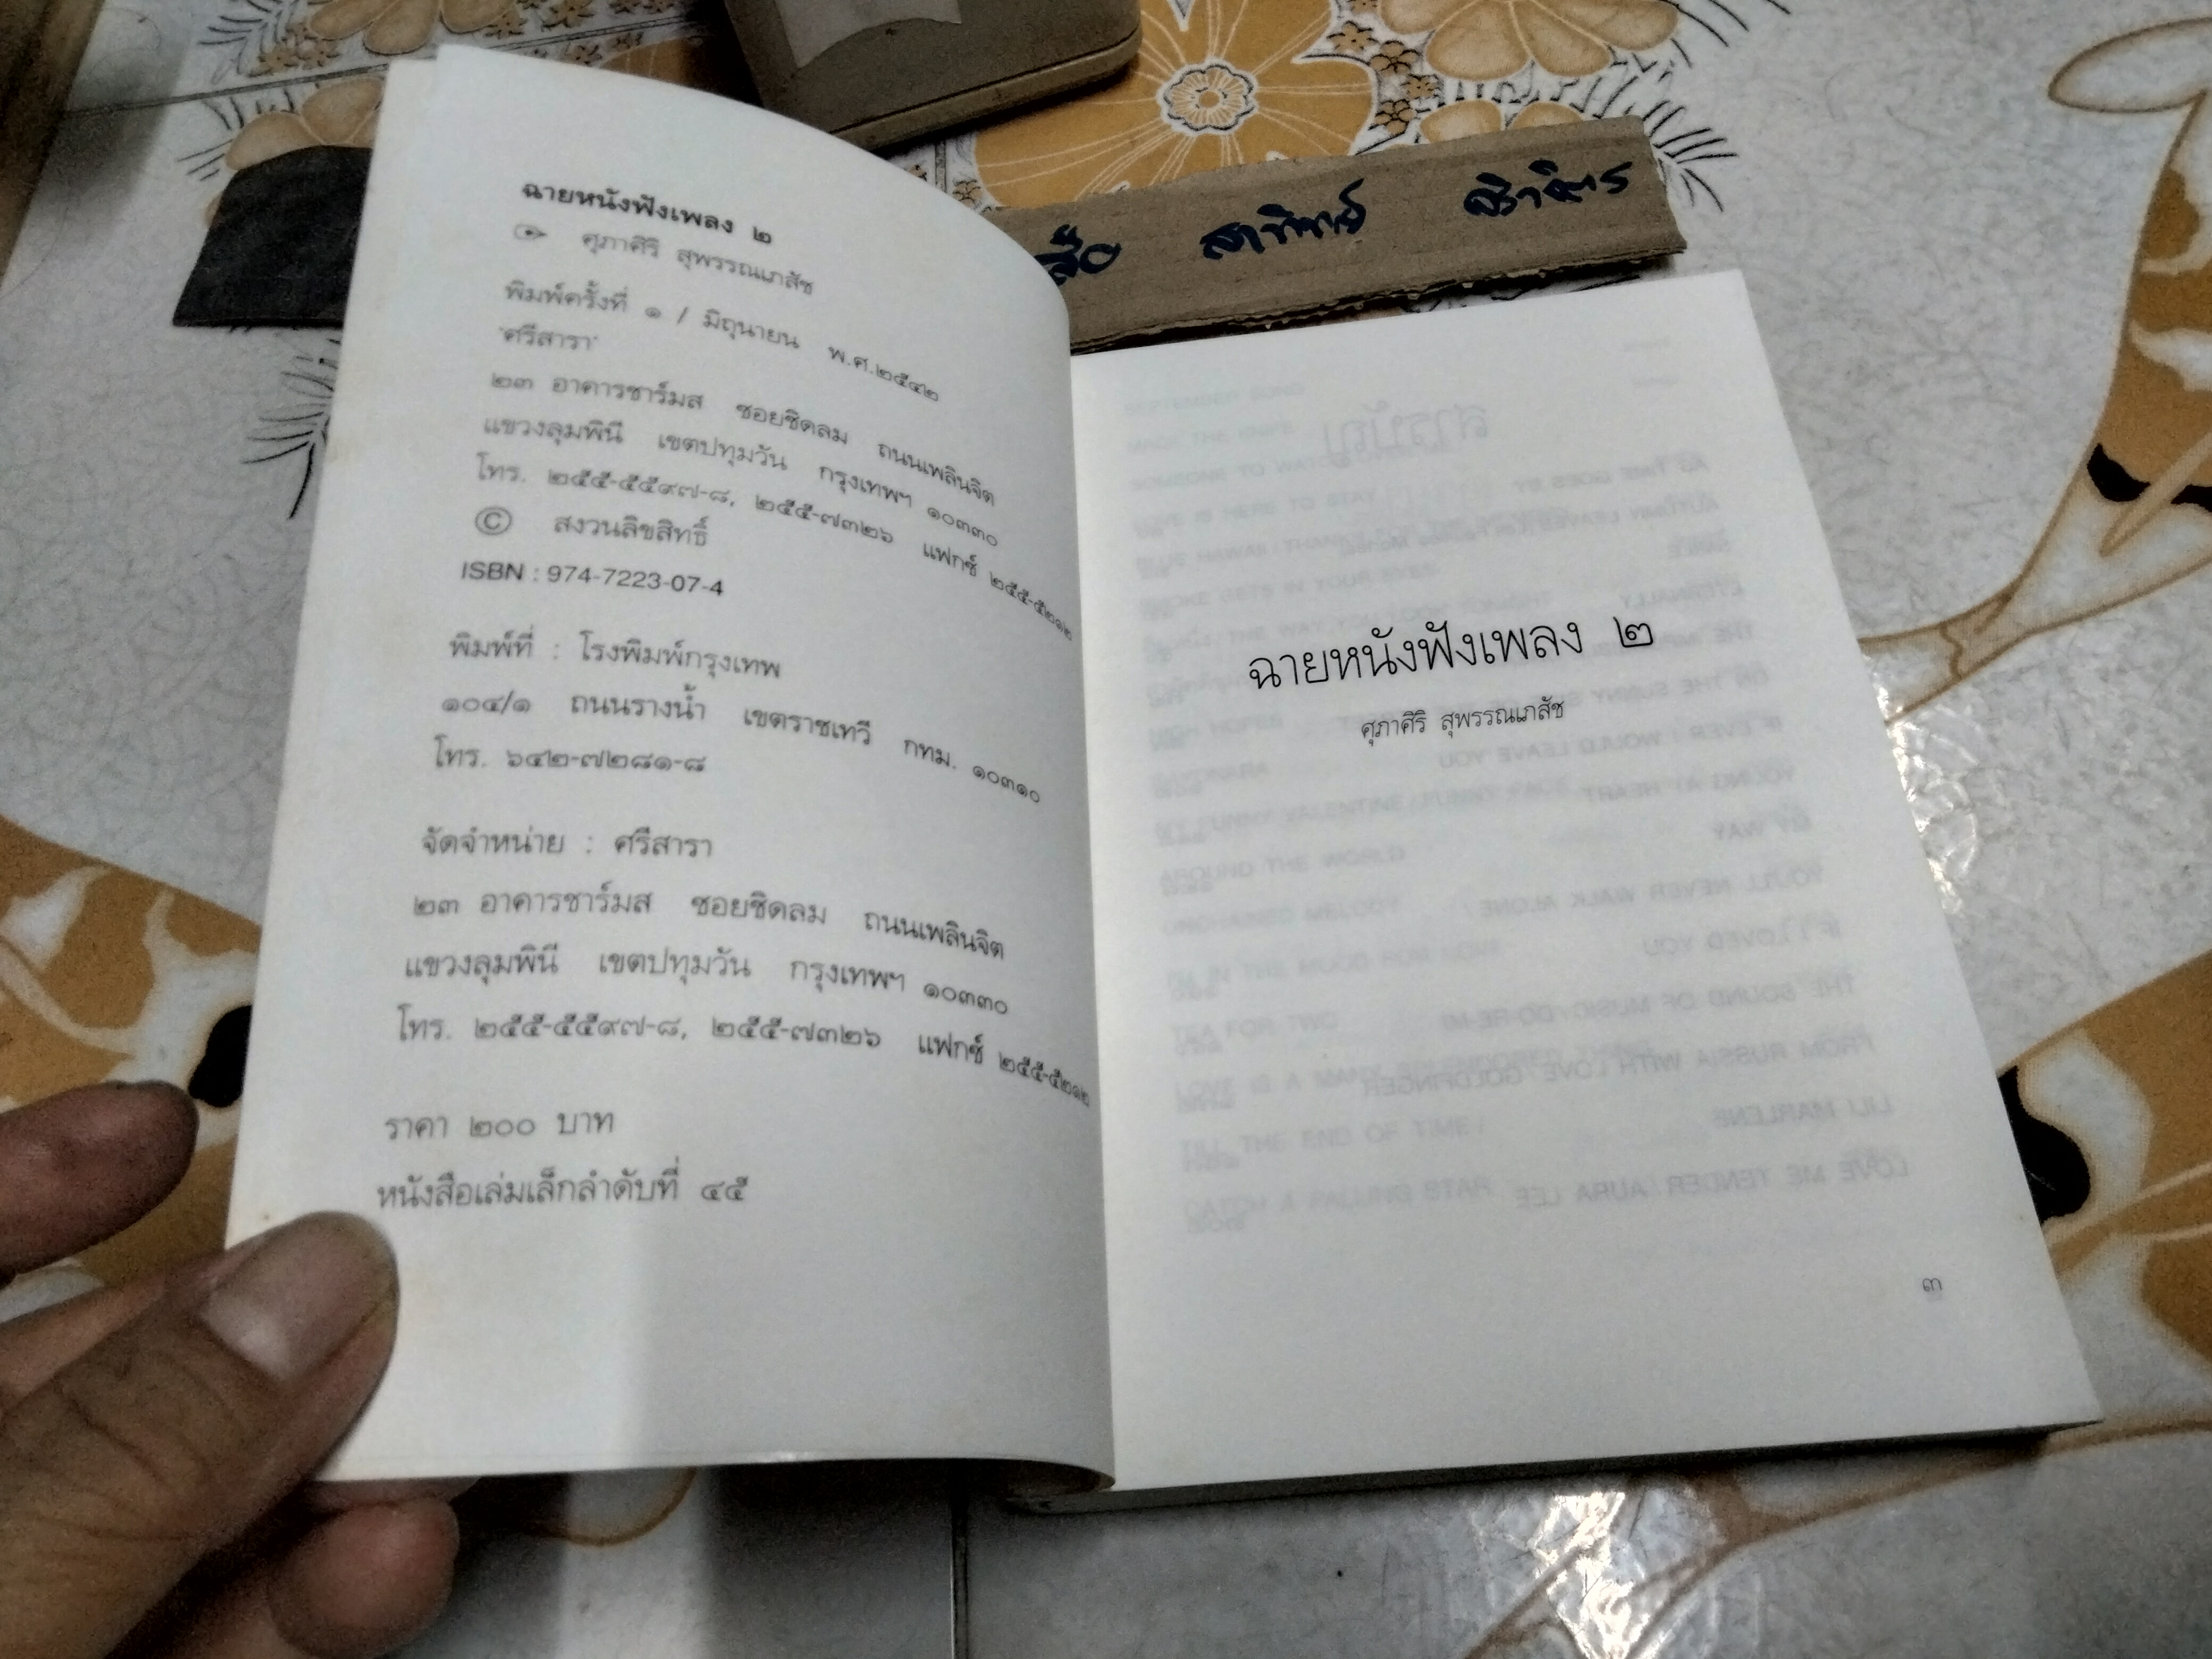 ฉายหนังฟังเพลง ๒
ศุภาศิริ สุพรรณเภสัช
พิมพ์ครั้งที่ ๑ / มิถุนายน พ.ศ.๒๕๔๒
'ศรีสารา'
๒๓ อาคารชาร์มส ซอยชิดลม ถนนเพลินจิต
แขวงลุมพินี เขตปทุมวัน กรุงเทพฯ ๑๐๓๓๐
โทร. ๒๕๕-๕๕๙๗-๘, ๒๕๕-๗๓๒๖ แฟกซ์ ๒๕๕-๕๒๑๒
© สงวนลิขสิทธิ์
ISBN : 974-7223-07-4
พิมพ์ที่ : โรงพิมพ์กรุงเทพ
๑๐๔/๑ ถนนรางน้ำ เขตราชเทวี กทม. ๑๐๓๑๐
โทร. ๖๔๒-๗๒๘๑-๘
จัดจำหน่าย : ศรีสารา
๒๓ อาคารชาร์มส ซอยชิดลม ถนนเพลินจิต
แขวงลุมพินี เขตปทุมวัน กรุงเทพฯ ๑๐๓๓๐
โทร. ๒๕๕-๕๕๙๗-๘, ๒๕๕-๗๓๒๖ แฟกซ์ ๒๕๕-๕๒๑๒
ราคา ๒๐๐ บาท
หนังสือเล่มเล็กลำดับที่ ๔๕
ฉายหนังฟังเพลง ๒
ศุภาศิริ สุพรรณเภสัช
๓